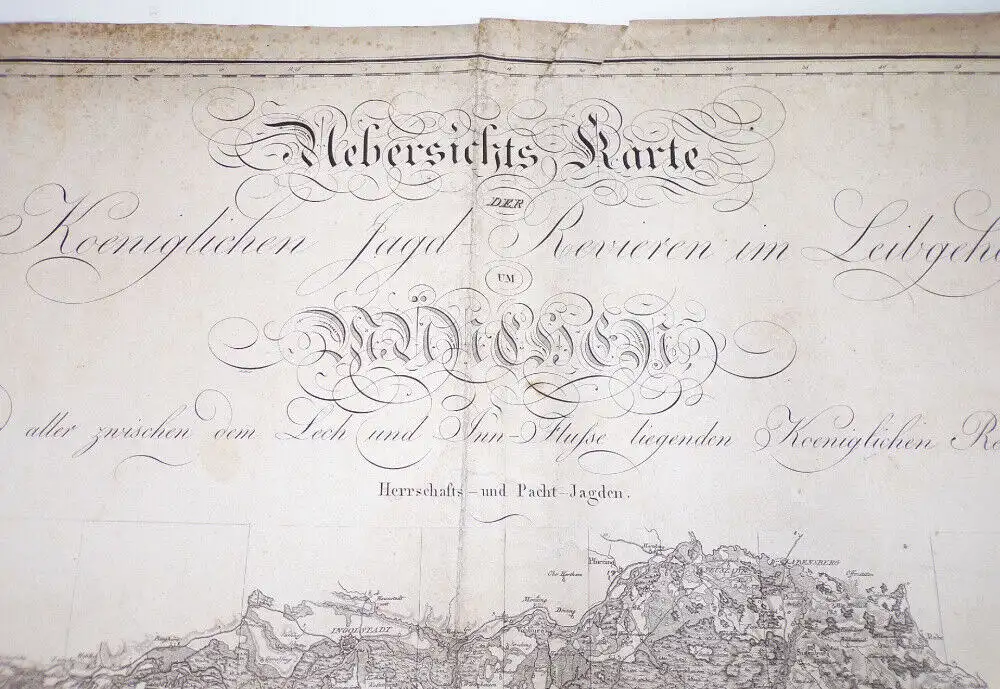 Uebersichts Karte
DER
Koeniglichen Jagd-Revieren im Leibgehe
UM
MÜNCHEN,
aller zwischen dem Lech und Inn-Flusse liegenden Koeniglichen Re
Herrschafts-und Pacht-Jagden.
Pforring
ABENSBERG
INGOLSTADT